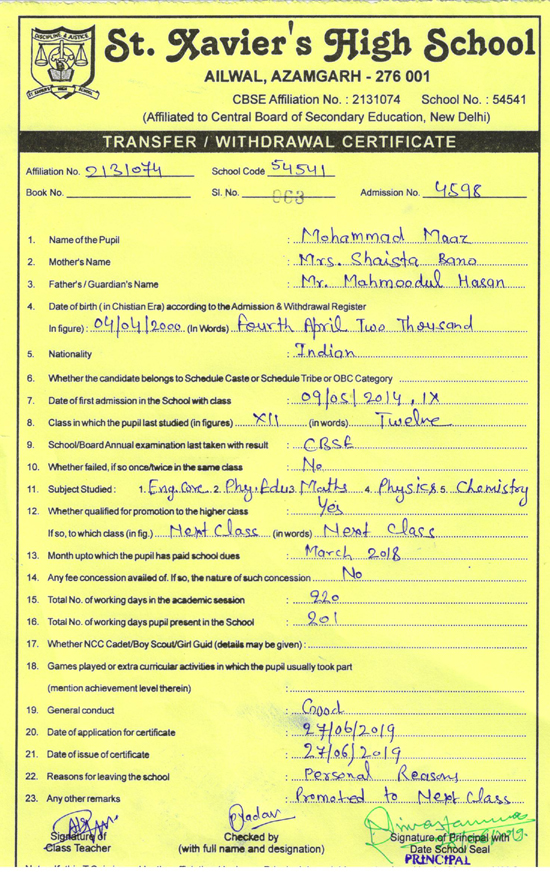 DISCIPLINE & JUSTICE
ST. XAVIER'S HIGH SCHOOL
St. Xavier's High School
AILWAL, AZAMGARH - 276 001
CBSE Affiliation No. : 2131074 School No. : 54541
(Affiliated to Central Board of Secondary Education, New Delhi)
TRANSFER / WITHDRAWAL CERTIFICATE
Affiliation No. 2131074 School Code 54541
Book No. Sl. No. 063 Admission No. 4598
1. Name of the Pupil : Mohammad Maaz
2. Mother's Name : Mrs. Shaista Bano
3. Father's / Guardian's Name : Mr. Mahmoodul Hasan
4. Date of birth ( in Chistian Era) according to the Admission & Withdrawal Register
In figure) : 04/04/2000 (In Words) Fourth April Two Thousand
5. Nationality : Indian
6. Whether the candidate belongs to Schedule Caste or Schedule Tribe or OBC Category
7. Date of first admission in the School with class : 09/05/2014, IX
8. Class in which the pupil last studied (in figures) XII (in words) Twelve
9. School/Board Annual examination last taken with result : CBSE
10. Whether failed, if so once/twice in the same class : No
11. Subject Studied : 1. Eng. Core 2. Phy. Edu 3. Maths 4. Physics 5. Chemistry
12. Whether qualified for promotion to the higher class : Yes
If so, to which class (in fig.) Next Class (in words) Next Class
13. Month upto which the pupil has paid school dues : March 2018
14. Any fee concession availed of. If so, the nature of such concession No
15. Total No. of working days in the academic session : 220
16. Total No. of working days pupil present in the School : 201
17. Whether NCC Cadet/Boy Scout/Girl Guid (details may be given) :
18. Games played or extra curricular activities in which the pupil usually took part
(mention achievement level therein) :
19. General conduct : Good
20. Date of application for certificate : 27/06/2019
21. Date of issue of certificate : 27/06/2019
22. Reasons for leaving the school : Personal Reasons
23. Any other remarks : Promoted to Next Class
Yadav
Signature of Checked by Signature of Principal with
Class Teacher (with full name and designation) Date School Seal
PRINCIPAL